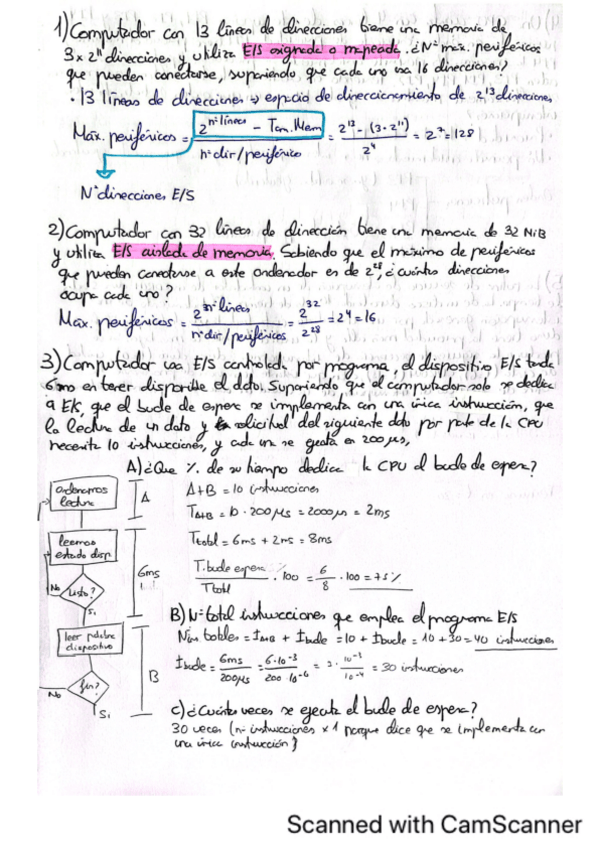 1) Computador con 13 líneas de direcciones tiene una memoria de
3 x 2¹¹ direcciones y utiliza E/S asignada o mapeada. ¿Nº max. periféricos
que pueden conectarse, suponiendo que cada uno usa 16 direcciones?
· 13 líneas de direcciones → espacio de direccionamiento de 2¹³ direcciones
Máx. periféricos = (2^nº líneas − Tam. Mem) / nº dir/periférico = (2¹³ − (3·2¹¹)) / 2⁴ = 2⁷ = 128
Nº direcciones E/S
2) Computador con 32 líneas de dirección tiene una memoria de 32 MiB
y utiliza E/S aislada de memoria. Sabiendo que el máximo de periféricos
que pueden conectarse a este ordenador es de 2²⁸ ¿cuántas direcciones
ocupa cada uno?
Máx. periféricos = 2^nº líneas / nº dir/periféricos = 2³² / 2²⁸ = 2⁴ = 16
3) Computador usa E/S controlada por programa, el dispositivo E/S tarda
6ms en tener disponible el dato. Suponiendo que el computador solo se dedica
a E/S, que el bucle de espera se implementa con una única instrucción, que
la lectura de un dato y solicitud del siguiente dato por parte de la CPU
necesita 10 instrucciones, y cada una se ejecuta en 200 µs,
A) ¿Que % de su tiempo dedica la CPU al bucle de espera?
ordenamos
lectura
A
A+B = 10 instrucciones
T A+B = 10 · 200µs = 2000µs = 2ms
leemos
estado disp.
6ms
Ttotal = 6ms + 2ms = 8ms
T. bucle espera / Ttotal · 100 = 6/8 · 100 = 75%
No
Listo?
Si
B) Nº total instrucciones que emplea el programa E/S
leer palabra
dispositivo
B
= 10 + Ibucle = 10 + 30 = 40 instrucciones
Ibucle = 6ms / 200µs = 6·10⁻³ / 200·10⁻⁶ = 30 instrucciones
No
fin?
Si
C) ¿Cuántas veces se ejecuta el bucle de espera?
30 veces (nº instrucciones x 1 porque dice que se implementa con
una única instrucción)
Scanned with CamScanner